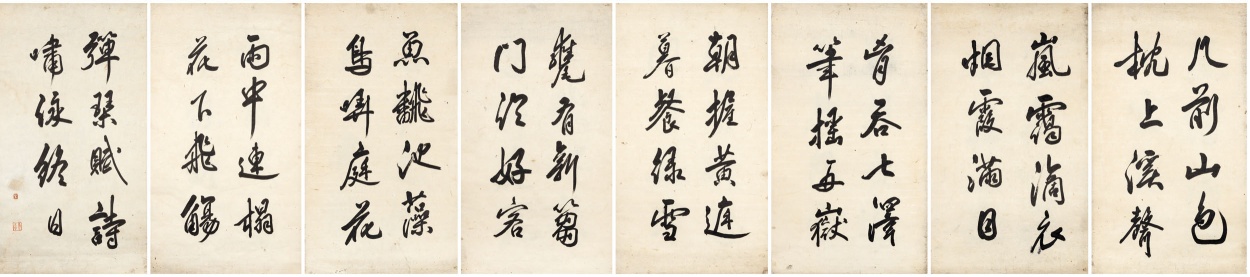 几前山色
枕上溪聲
嵐靄滴衣
烟霞滿目
胷吞七澤
筆搖五嶽
朝握黃庭
暮餐綠雪
甕有新篘
门、好客
魚翻池藻
鳥哢庭花
雨中連榻
花下飛觴
彈琴賦詩
嘯詠終日